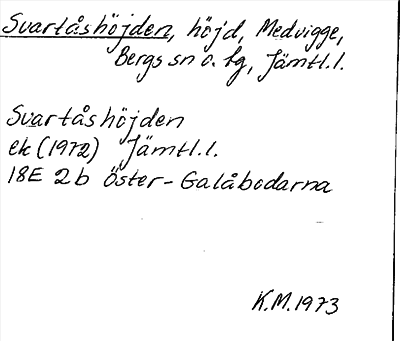 Svartåshöjden, höjd, Medvigge,
Bergs sn o. tg, Jämtl.l.
Svartåshöjden
ek (1972) Jämtl.l.
18E 2b Öster-Galåbodarna
K.M.1973